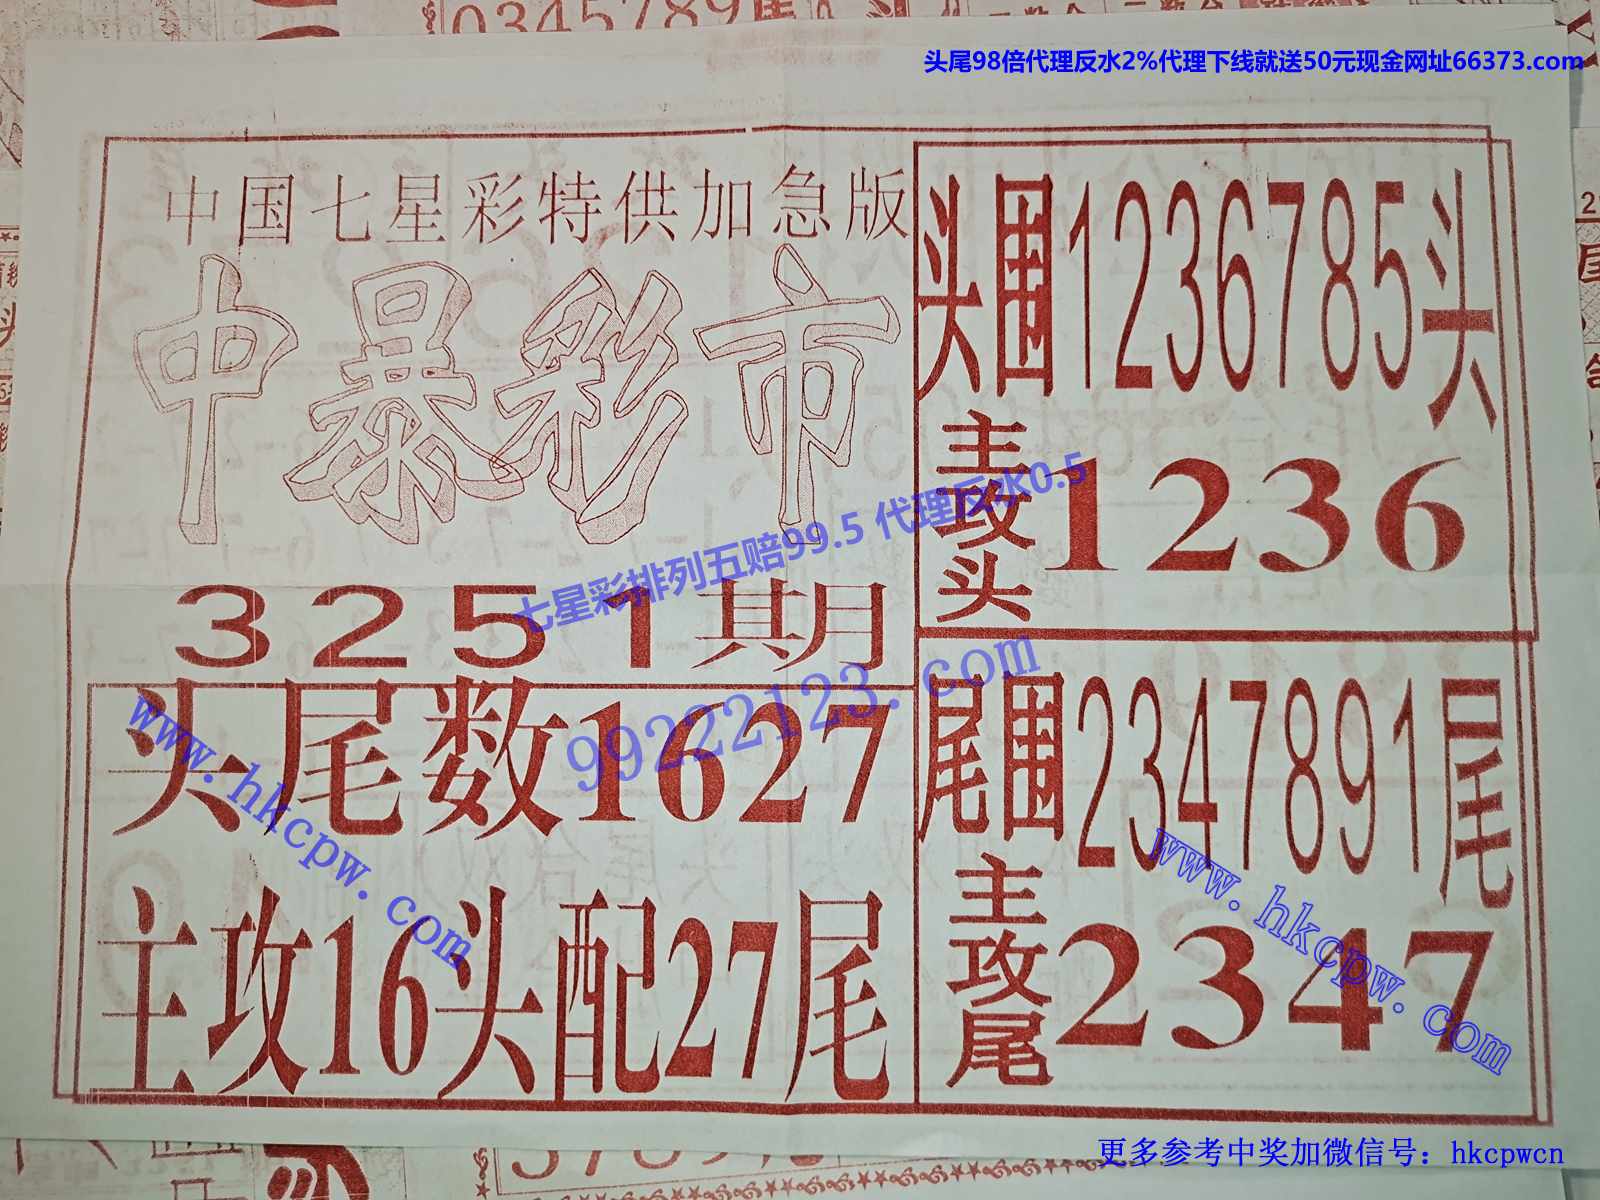 0345789尾
头尾98倍代理反水2%代理下线就送50元现金网址66373.com
中国七星彩特供加急版
中暴彩市
3251期
头尾数1627
主攻16头配27尾
头围1236785头
主攻头1236
尾围2347891尾
主攻尾2347
七星彩排列五赔99.5 代理反水0.5
99222123.com
www.hkcpw.com
www.hkcpw.com
更多参考中奖加微信号：hkcpwcn